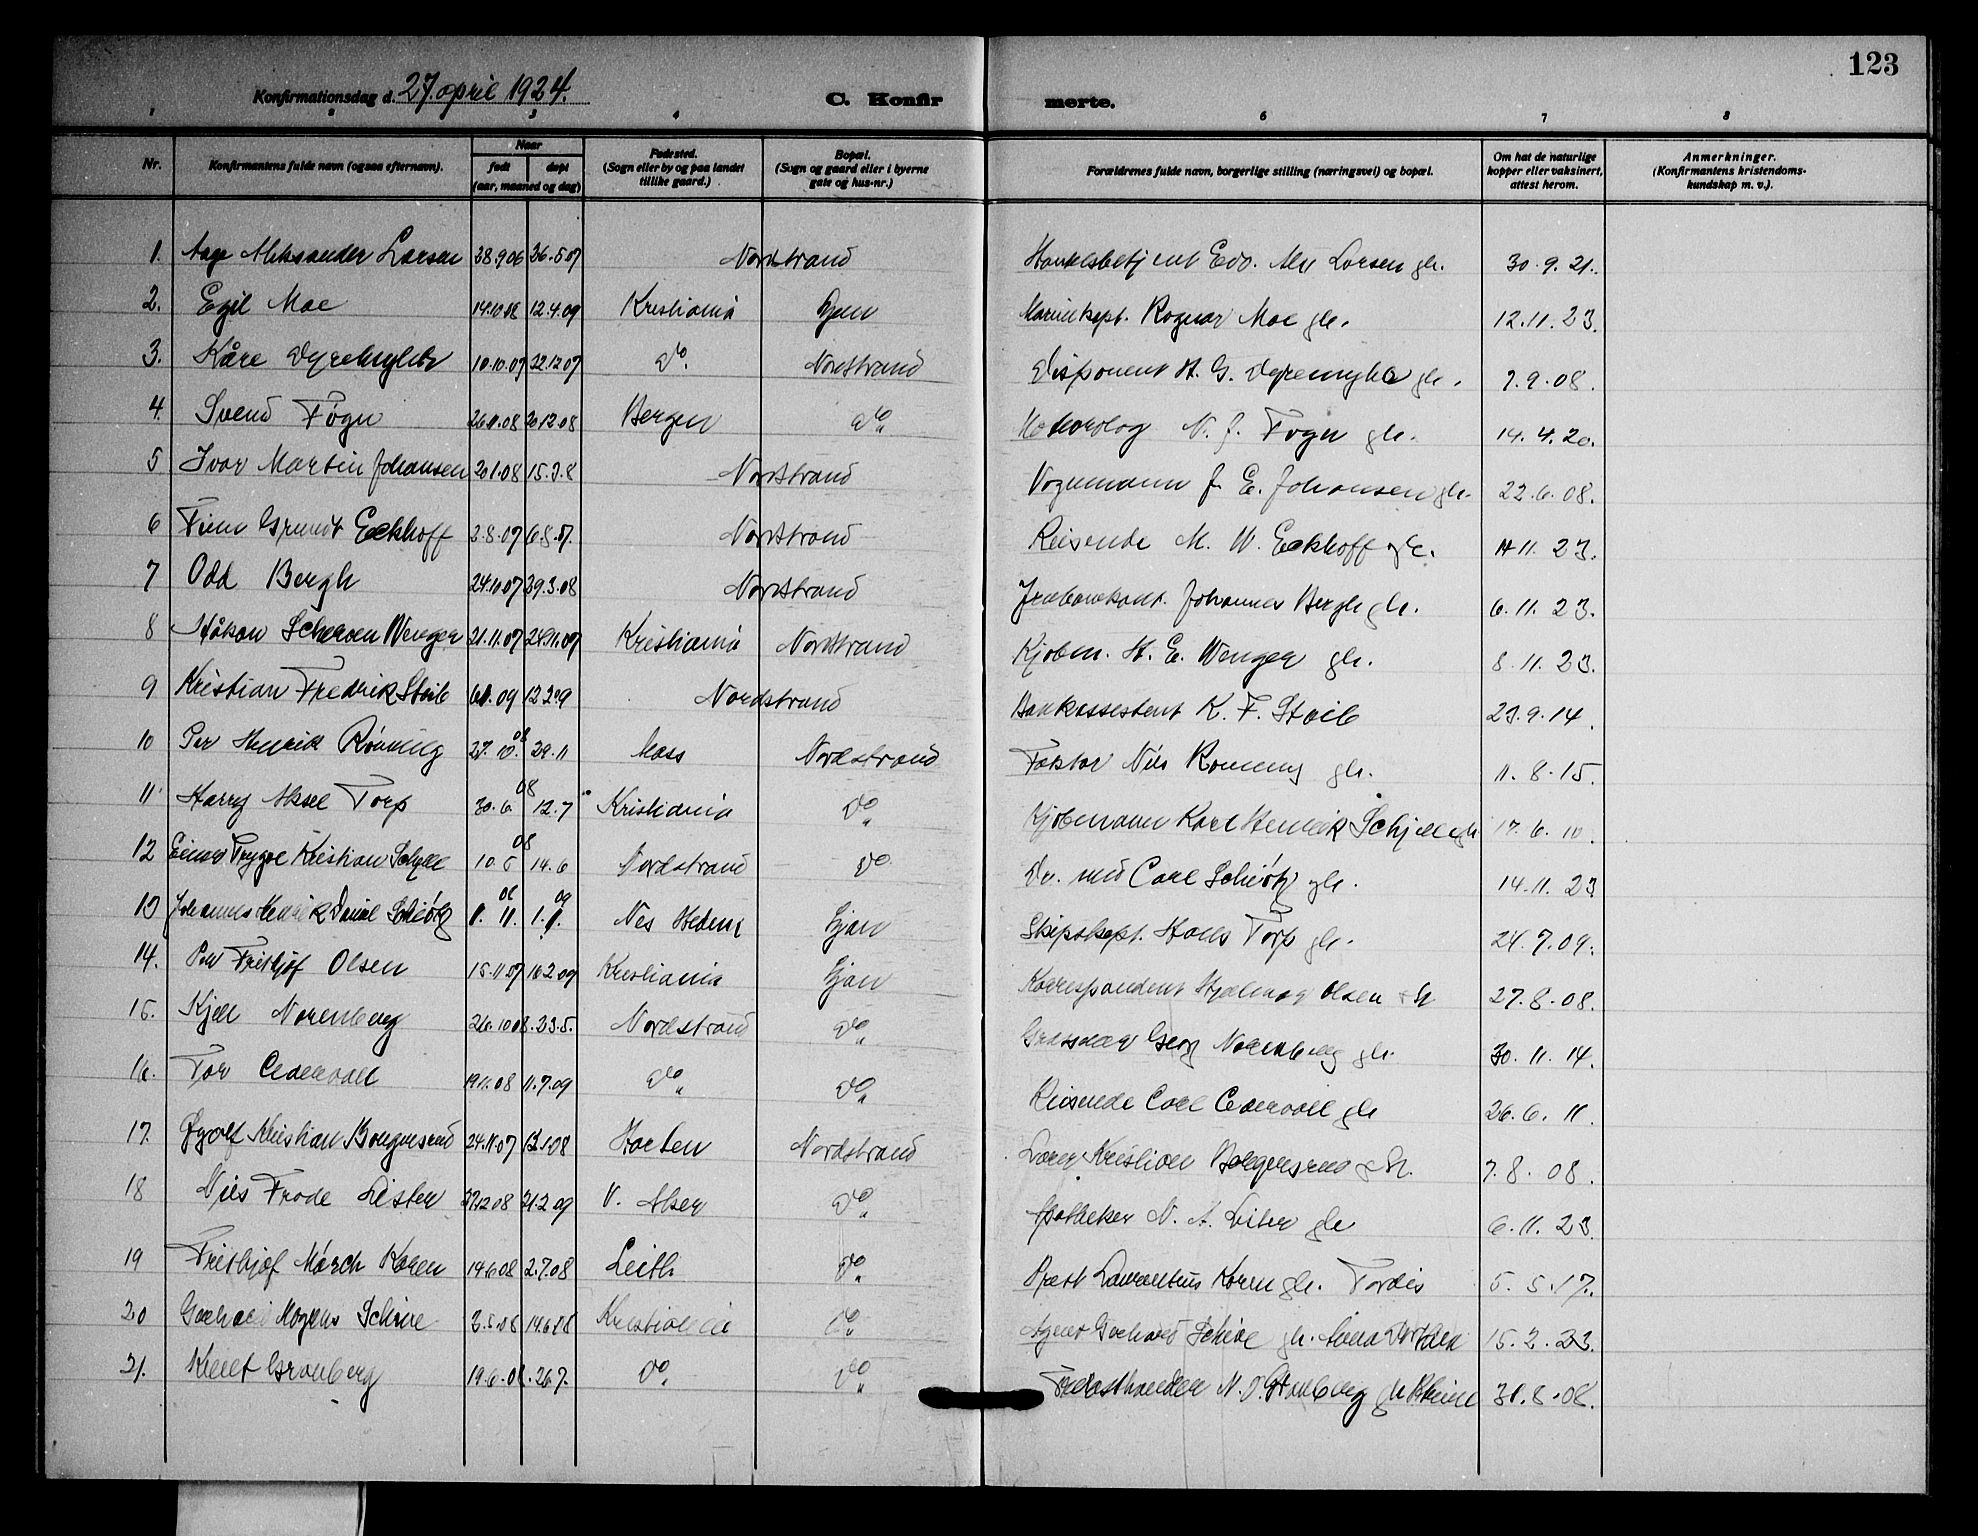 123
Konfirmationsdag d. 27. april 1924.
C. Konfir merte.
1 2 3 4 6 7 8
Nr. Konfirmantens fulde navn (ogsaa efternavn). Naar født døpt (aar, maaned og dag) Fødested. (Sogn eller by og paa landet tillike gaard.) Bopæl. (Sogn og gaard eller i byerne gate og hus-nr.) Forældrenes fulde navn, borgerlige stilling (næringsvei) og bopæl. Om hat de naturlige kopper eller vaksinert, attest herom. Anmerkninger. (Konfirmantens kristendoms-kundskap m. v.).
1. Aage Aleksander Larsen 28.9 06 26.5 07 Nordstrand Handelsbetjent Edv. Alex Larsen gh. 30.9.21.
2. Egil Moe 14.10 08 12.4.09 Kristiania Ljan Marinkapt. Ragnar Moe gh. 12.11.23.
3. Kåre Dyremyhr 10.10.07 22.12 07 Do. Nordstrand Disponent H. G. gh. 7.9.08.
4. Svend Føgn 26.11.08 20.12.08 Bergen Do Meteorolog N. J. Føgn gh. 14.4.20.
5 Ivar Martin Johansen 20 1.08 15.3.8 Nordstrand Vognmann J. E. Johansen gh. 22.6.08.
6 Finn Grundt Eckhoff 2.8.07 Nordstrand Reisende M. W. Eckhoff gh. 11.23.
7 Odd Bergh 24.10.07 29.3.08 Nordstrand Johannes Bergh gh. 6.11.23.
8 Håkon Wenger 21.11.07 Kristiania Nordstrand Kjøbm. H. E. Wenger gh. 8.11.23.
9 Kristian Fredrik Staib 09 12 2 09 Nordstrand Bankassistent K. F. Staib 23.9.14.
10 Per Henrik Rønning 27.10. 08 29.11 Moss Nordstrand Faktor Nils Rønning gh. 11.8.15.
11 Harry Aksel Torp 30.6 08 12.7 Kristiania Do Kjøbmann Karl Henrik Schjell gh 17.6.10.
12 Einar Trygve Kristian Schjell 10.5 08 14.6 Nordstrand Do Dr. med Carl Schiøtz gh. 14.11.23
13 Johannes Henrik Daniel Schiøtz 11. 08 1. 09 Nes Hedem Ljan Skipskapt. Hans Torp gh. 24.7.09.
14. Per Fritjof Olsen 15.11 07 16 2 09 Kristiania Ljan Korrespondent Hjalmar Olsen gh 27.8.08.
15. Kjell Norenberg 26.10 08. 23.5. Nordstrand Do Grosserer Georg Norenberg gh. 30.11.14.
16. Tor Cedervall 19.11.08 11.7.09 Do Do Reisende Carl Cedervall gh 26.6.11.
17. Kristian Borgersrud 24.11.07 Horten Nordstrand Kristian Borgersrud gh. 7.8.08.
18 Nils Frode Lister 12 08 21.2 09 V. Aker Do Apotheker N. A. gh 6.11.23.
19 Fritjof Mørch Koren 14 6 08 2.7.08 Leith Do Prest Laurentius Koren gh. Tordis 5.5.17.
20 Gerhard Mogens Schive 3.5.08 14 6 08 Kristiania Do Agent Gerhard Schive gh. 15.2.23.
21. Granberg 19.6.08. 26 7. Do Do gh 8.08.